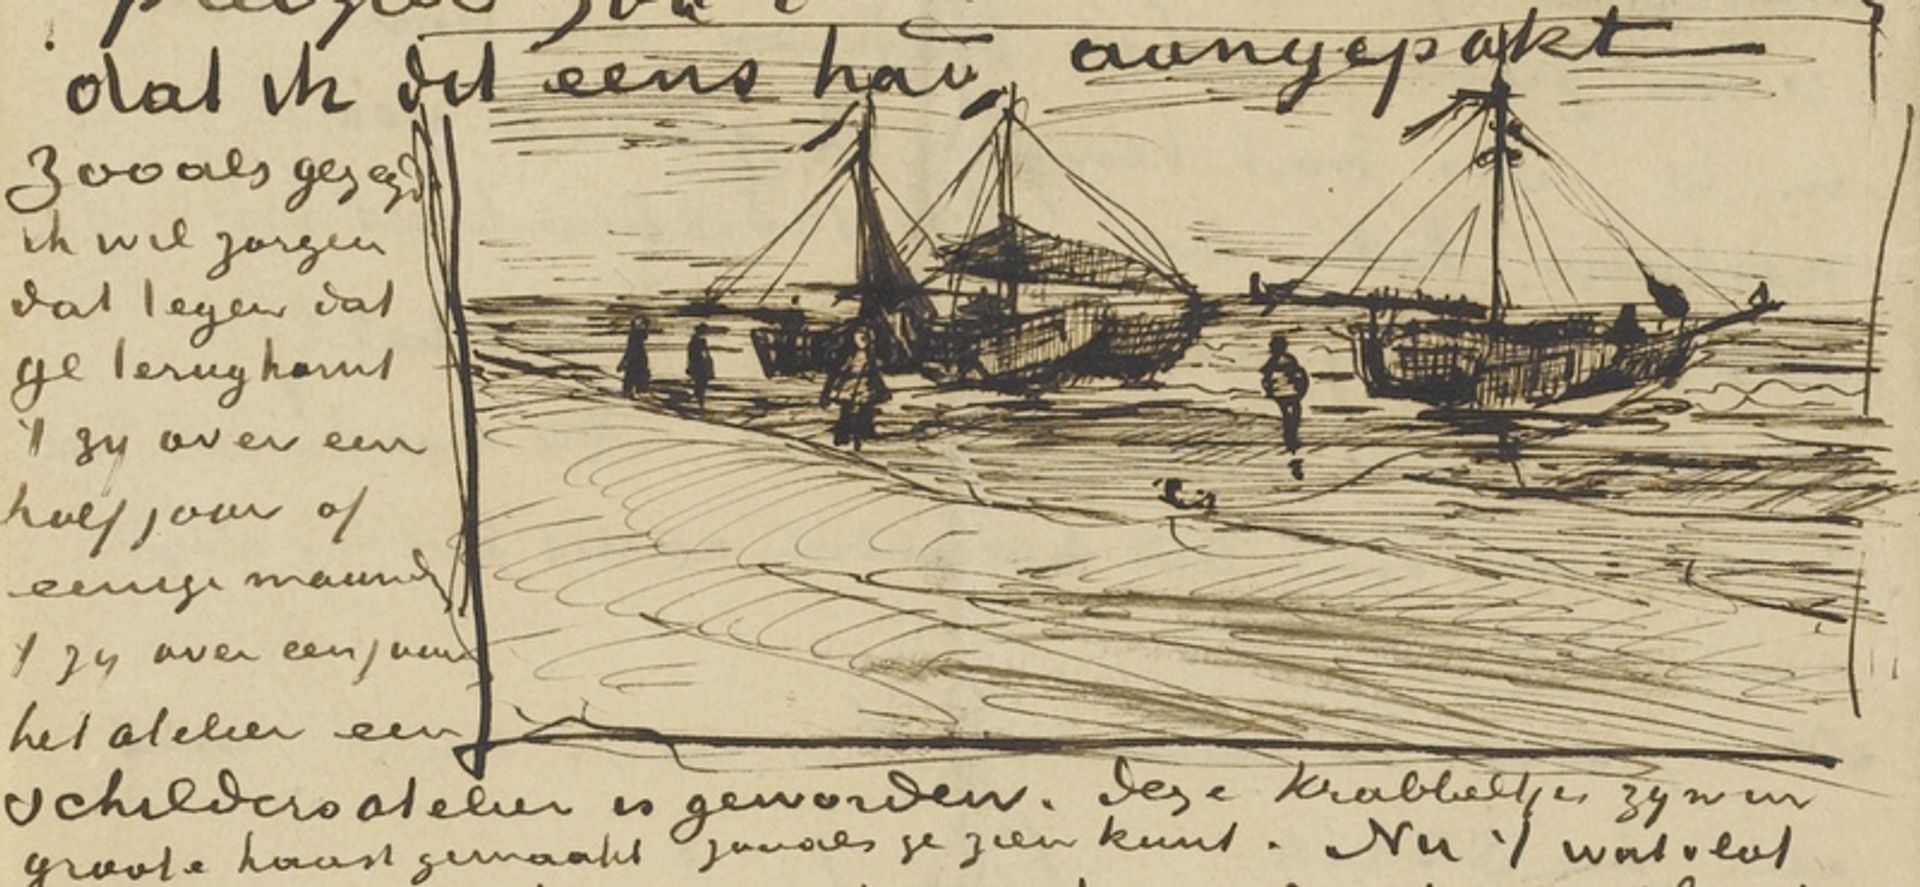 dat ik dit eens had aangepakt
Zooals gezegd
ik wil zorgen
dat tegen dat
ge terugkomt
't zij over een
half jaar of
eenige maand
't zij over een jaar
het atelier een
schildersatelier is geworden. Deze krabbeltjes zijn in
groote haast gemaakt zooals ge zien kunt. Nu 't wat vlot